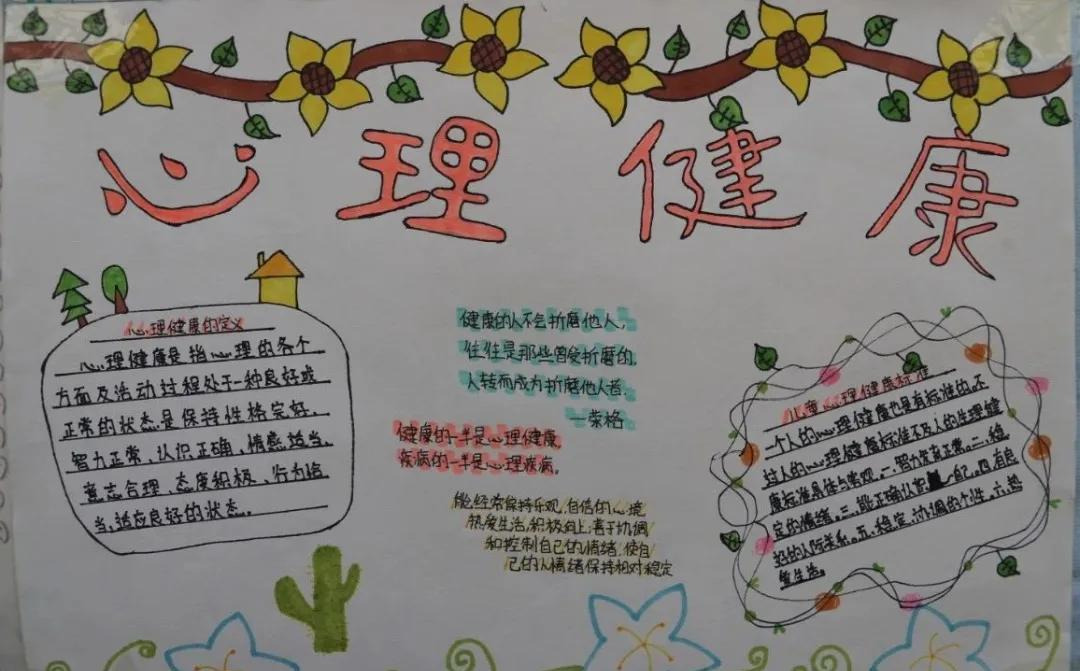 心理健康
心理健康的定义
心理健康是指心理的各个
方面及活动过程处于一种良好或
正常的状态.是保持性格完好.
智力正常、认识正确、情感适当.
意志合理、态度积极、行为恰
当.适应良好的状态.
健康的人不会折磨他人,
往往是那些曾受折磨的,
人转而成为折磨他人者.
—荣格
健康的一半是心理健康,
疾病的一半是心理疾病.
能经常保持乐观.自信的心境
热爱生活,积极向上,善于协调
和控制自己的情绪.使自
己的人情绪保持相对稳定
儿童心理健康标准
一个人的心理健康也是有标准的.不
过人的心理健康标准不及人的生理健
康标准具体与客观.一.智力发育正常.二.稳
定的情绪.三.能正确认识自己.四.有良
好的人际关系.五.稳定、协调的个性.六.热
爱生活。